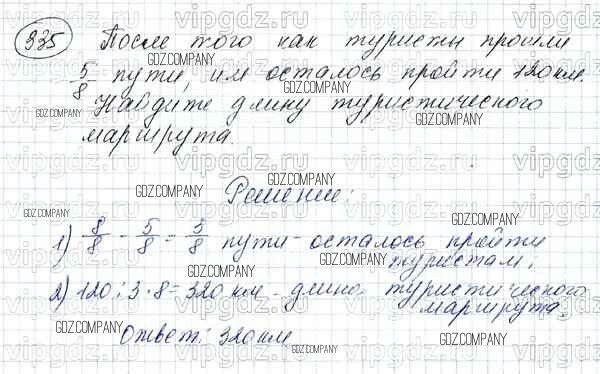 335 После того как туристы прошли
5/8 пути, им осталось пройти 120 км.
Найдите длину туристического
маршрута.
Решение:
1) 8/8 - 5/8 = 3/8 пути - осталось пройти
туристам;
2) 120 : 3 · 8 = 320 км - длина туристического
маршрута.
Ответ: 320 км
vipgdz.ru
GDZ.COMPANY